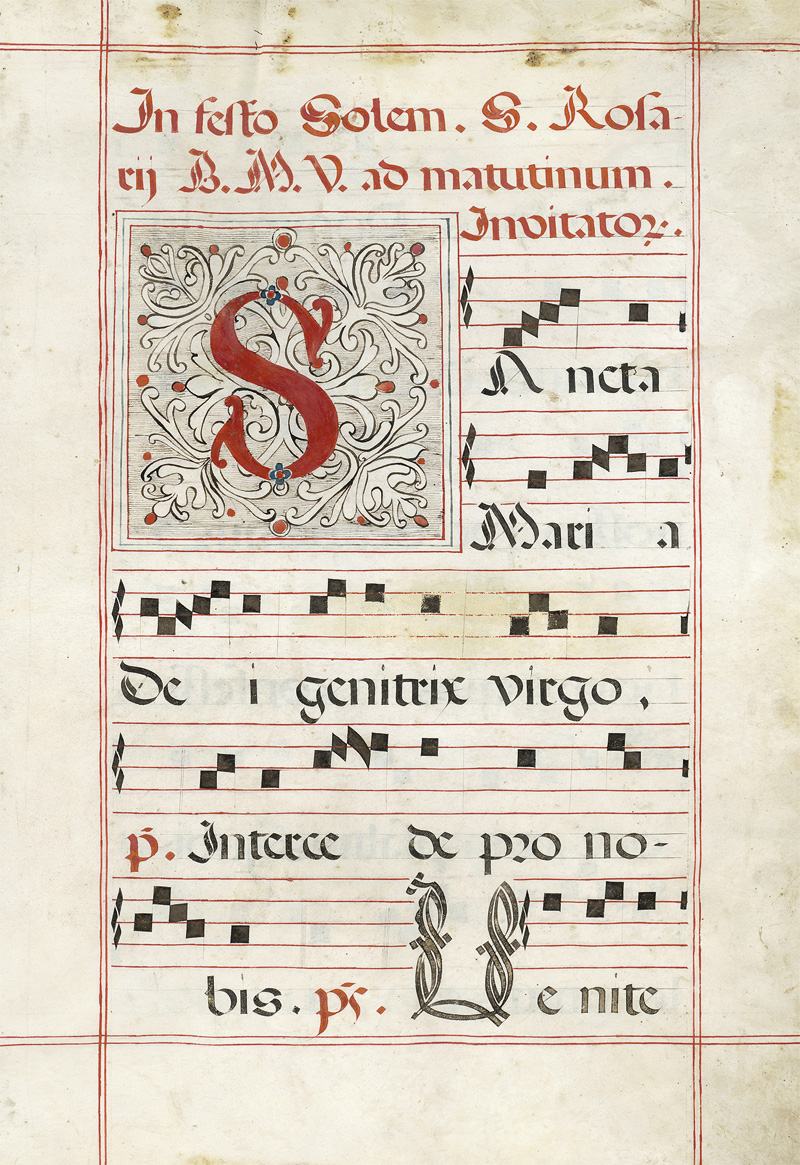 In festo Solem. S. Rosa-
rij B. M. V. ad matutinum.
Invitatoꝝ.
SAncta
Mari a
De i genitrix virgo,
p̃. Interce de pro no-
bis. ps̃. Ve nite